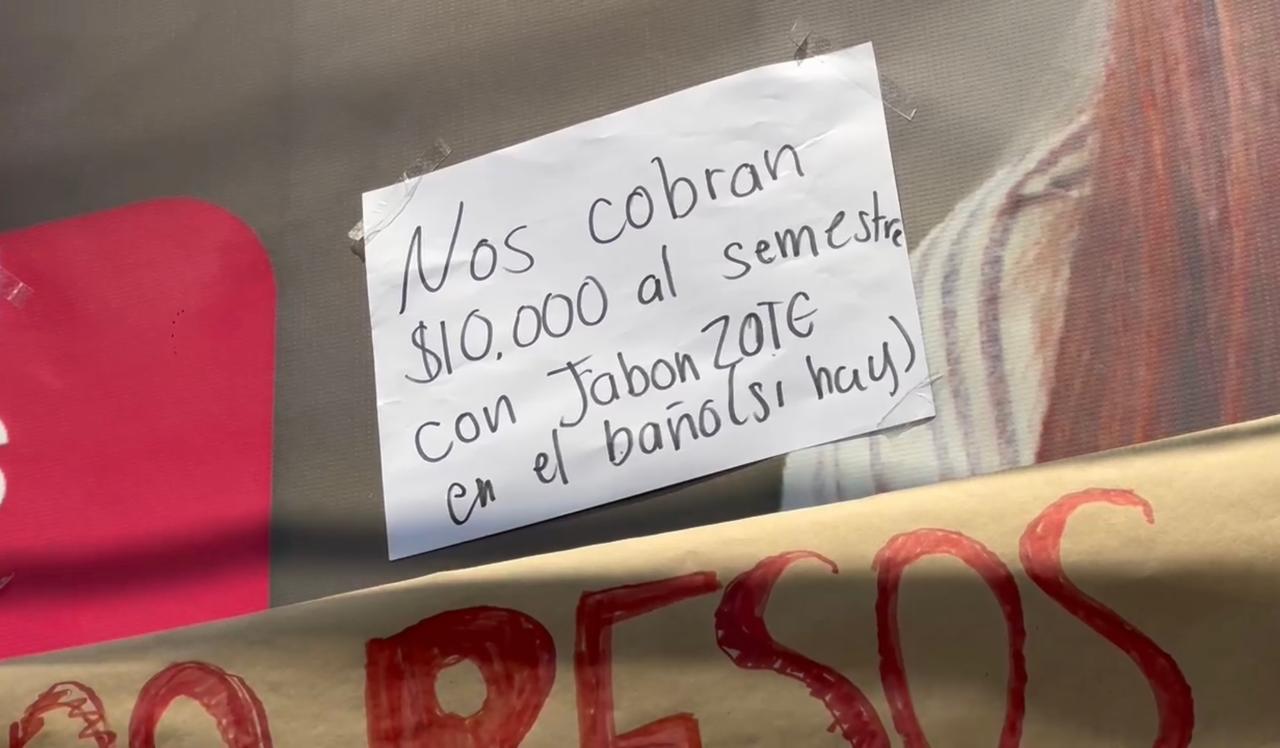 Nos cobran
$10,000 al semestre
con Jabon ZOTE
en el baño (si hay)
PESOS